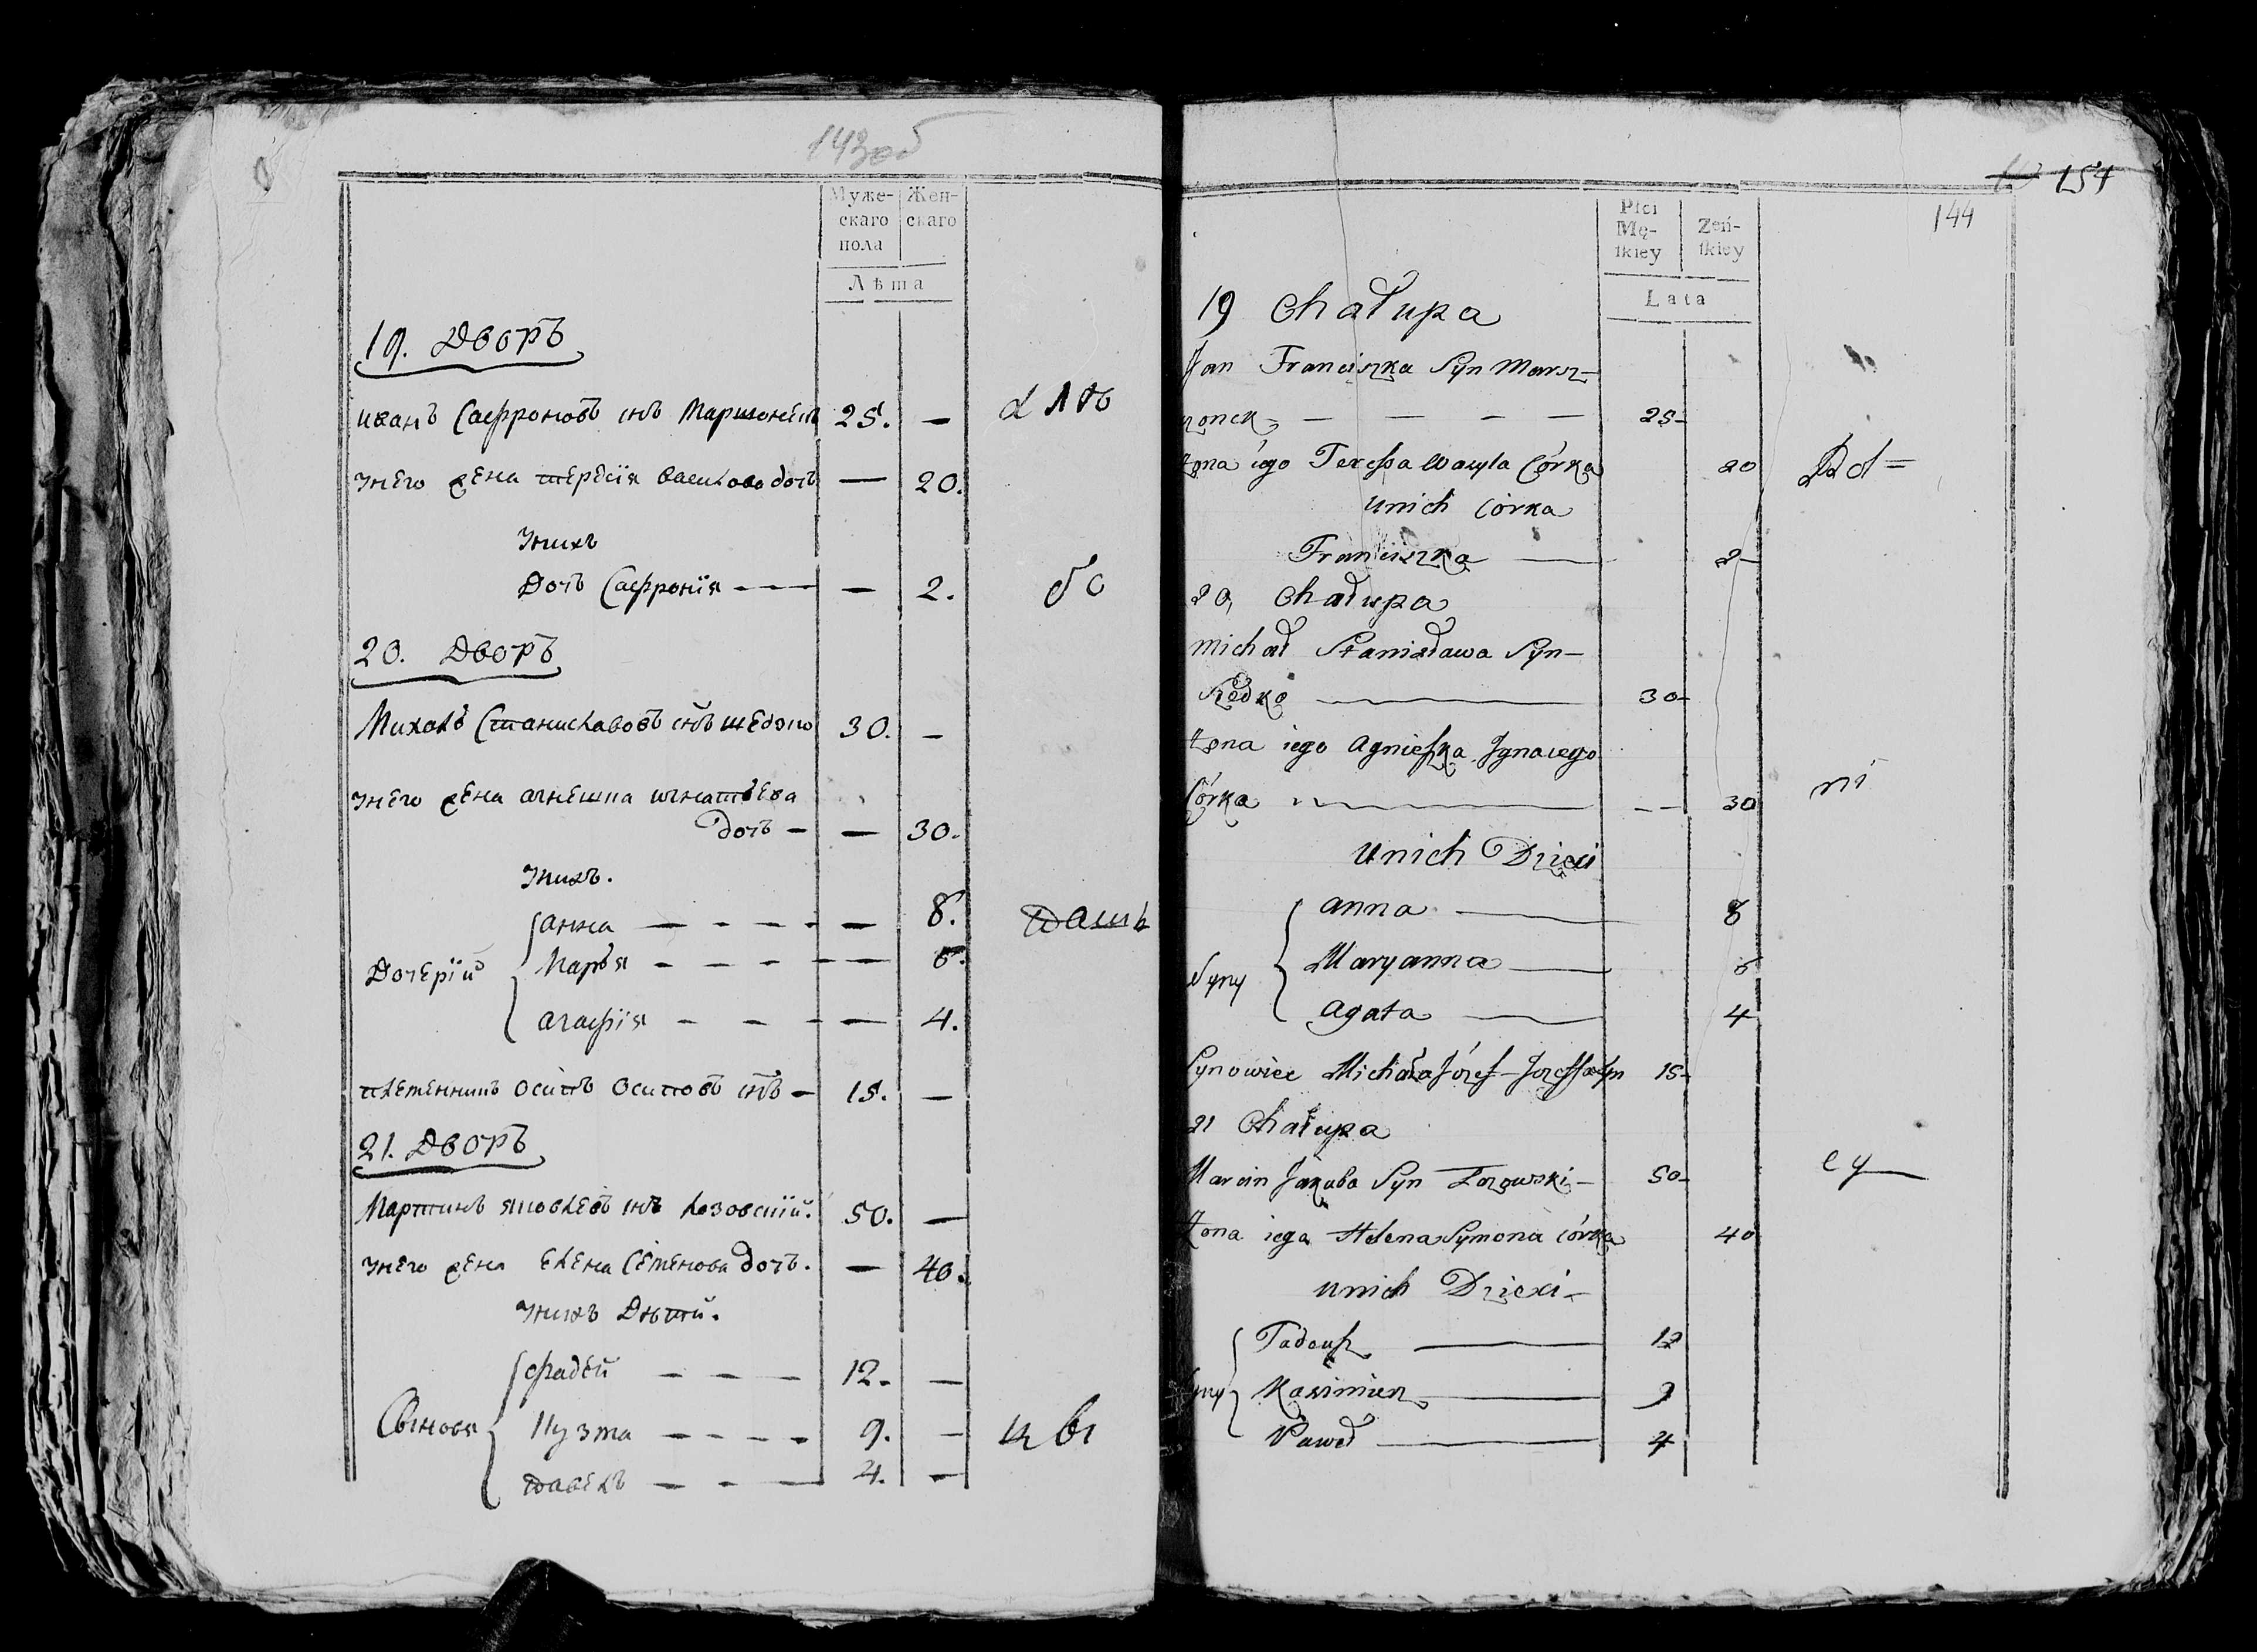 143об
Муже-
скаго
пола
Жен-
скаго
Лѣта
19. Дворъ
Иванъ Сафроновъ снъ 25. —
у него жена Тересия дочь — 20.
У нихъ
Дочь Сафронія — 2.
бо
20. Дворъ
Михалъ Станиславовъ снъ 30. —
у него жена Агнешка Игнатьева
дочь — — 30.
У нихъ.
Дочерій
Анна — 8.
Марья — 6.
Агафія — 4.
племенникъ Осипъ Осиповъ снъ — 15. —
21. Дворъ
Мартинъ Яковлевъ снъ Лозовскій. 50. —
у него жена Елена Семенова дочь. — 40.
У нихъ Дѣтй.
Сыновя
Фадей — 12. —
Кузма — 9. —
Павелъ — 4. —
154
144
Płci
Mę-
ſkiey
Zeń-
ſkiey
Lata
19 Chałupa
Jan Franciszka Syn Marsz-
25-
Żona iego Teressa Wasyla Córka 20
unich Córka
Franciszka — 2-
20, Chałupa
Michał Stanisława Syn-
30-
Żona iego Agnieszka Ignacego
Córka — 30
unich Dzieci
Syny
Anna — 8
Maryanna — 6
Agata — 4
Synowiec Michała Józef Jozefa Syn 15-
21 Chałupa
Marcin Jakuba Syn Łozowski- 50-
Żona iego Helena Symona córka 40
unich Dzieci-
Syny
Tadeusz — 12
Kazimierz — 9
Paweł — 4
ni
cy